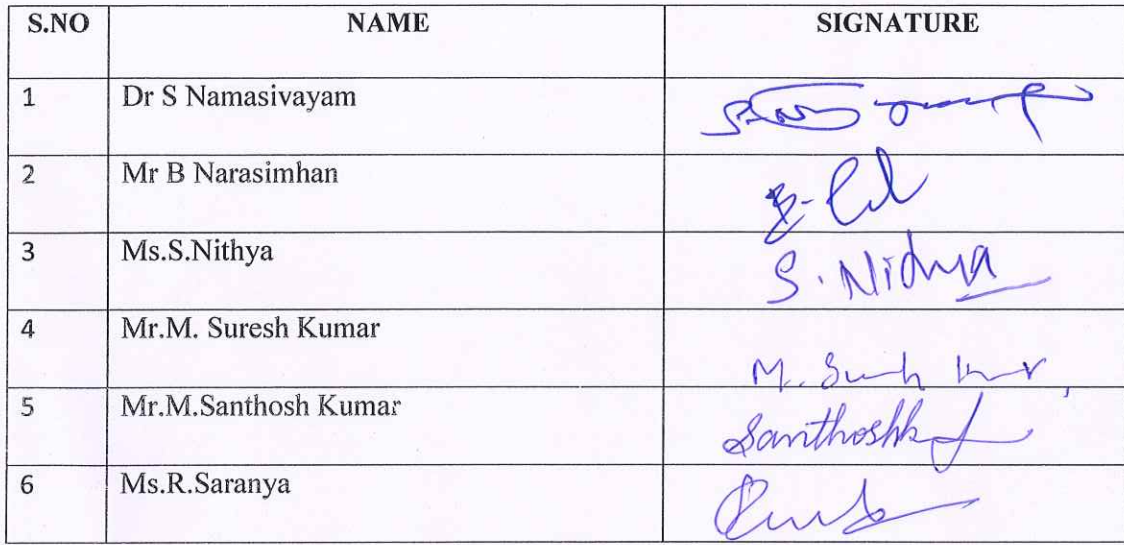 S.NO NAME SIGNATURE
1 Dr S Namasivayam
2 Mr B Narasimhan
3 Ms.S.Nithya S. Nidhya
4 Mr.M. Suresh Kumar
5 Mr.M.Santhosh Kumar Santhoshk
6 Ms.R.Saranya